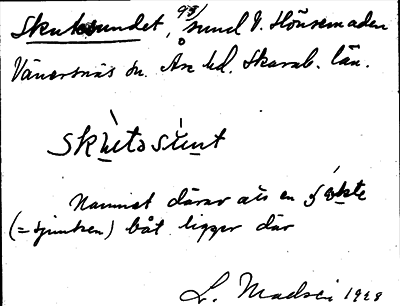 Skutesundet, 93/ sund V. Hönsemaden
Vänersnäs sn. Åse hd. Skarab. län.
skùtǝsùnt
Namnet därav att en skute
(= sjunken) båt ligger där
L. Madsén 1928